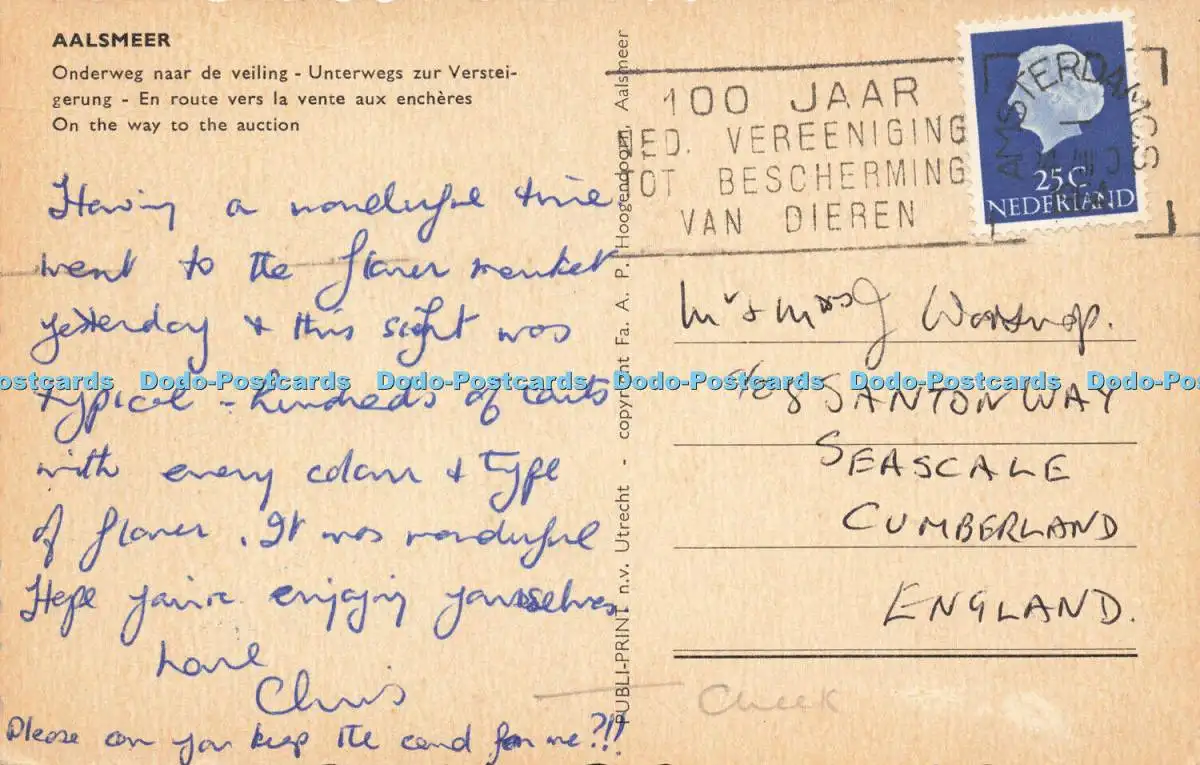 AALSMEER
Onderweg naar de veiling - Unterwegs zur Verstei-
gerung - En route vers la vente aux enchères
On the way to the auction
Having a wonderful time
went to the flower market
yesterday & this sight was
typical - hundreds of carts
with every colour & type
of flower. It was wonderful
Hope you're enjoying yourselves
Love
Chris
Please can you keep the card for me?!!!
PUBLI-PRINT n.v. Utrecht - copyright Fa. A. P. Hoogendoorn, Aalsmeer
100 JAAR
NED. VEREENIGING
TOT BESCHERMING
VAN DIEREN
AMSTERDAM CS
25 C
NEDERLAND
Mr & Mrs J
8 SANTON WAY
SEASCALE
CUMBERLAND
ENGLAND.
Cheek
Dodo-Postcards Dodo-Postcards Dodo-Postcards Dodo-Postcards Dodo-Postcards